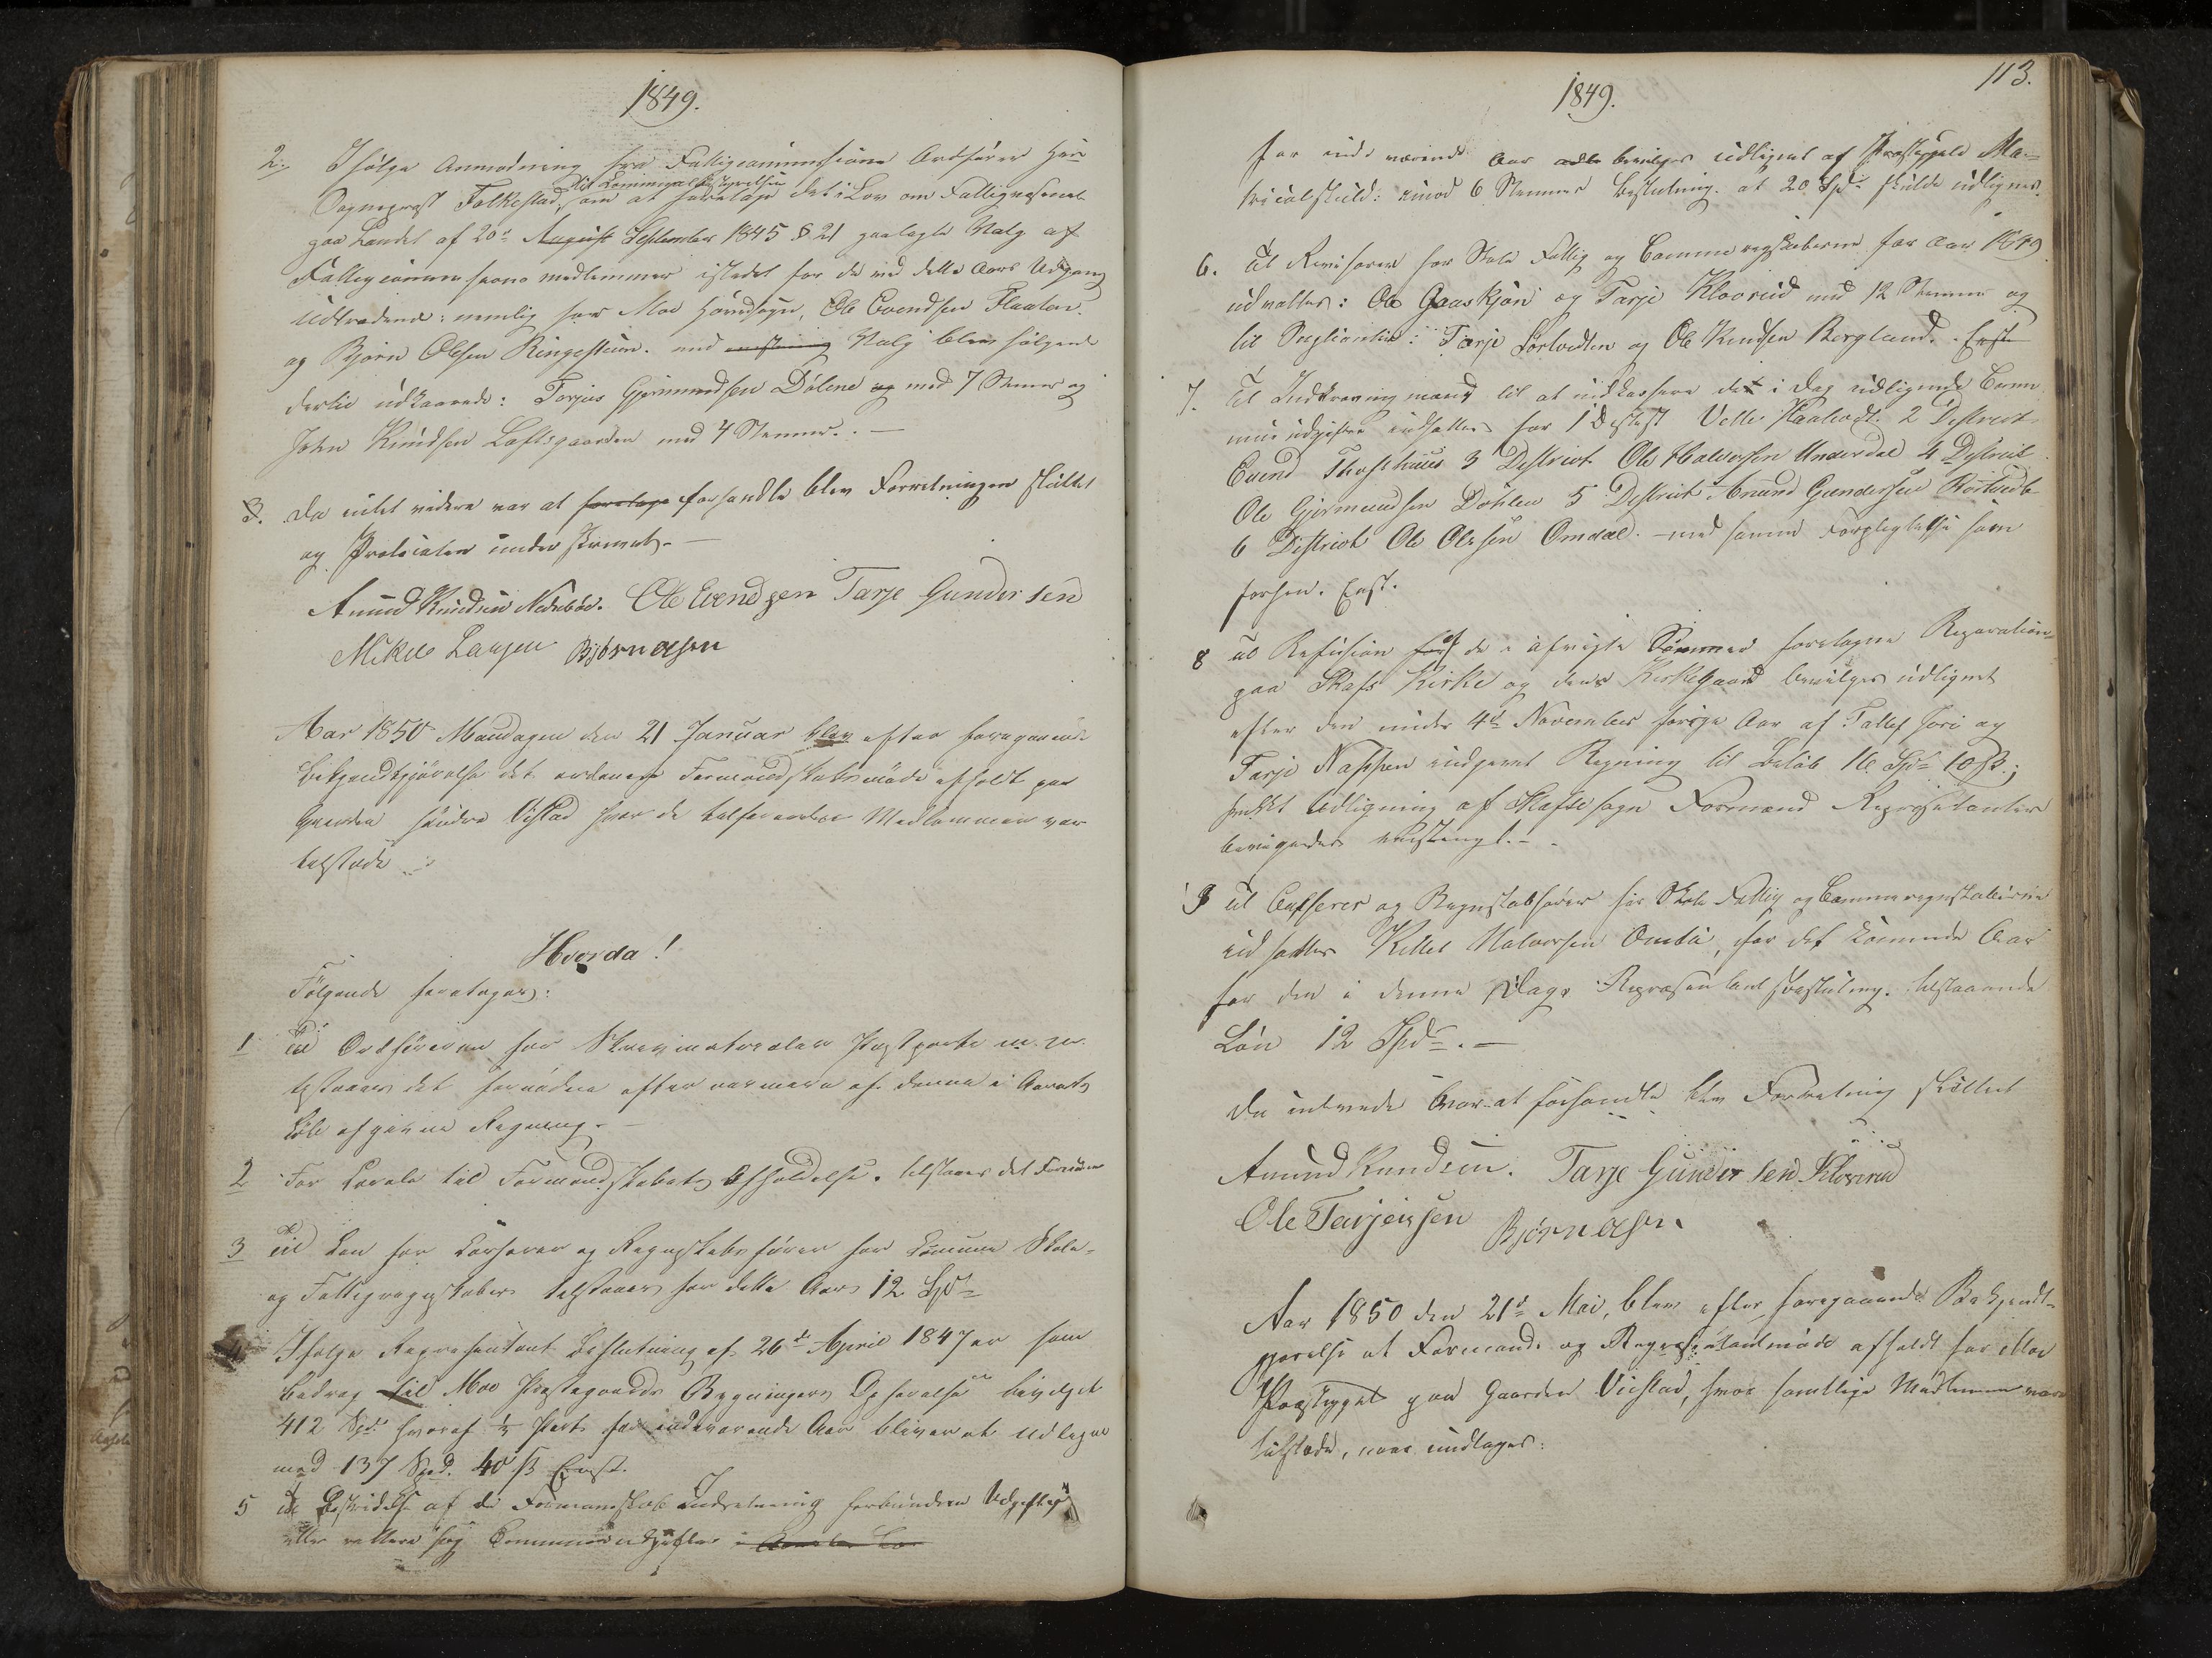 1849.
2. Ifølge Anmodning fra Fattigcommissions Ordfører Herr
til Communalbestyrelsen
Sogneprest Falkestad, om at foretage det i Lov om Fattigvæsenet
paa Landet af 20de August September 1845 § 21 paalagte Valg af
Fattigcommissions medlemmer istedet for de ved dette Aars Udgang
udtrædende: nemlig for Moe Hovedsogn, Ole Evendsen Flaaten
og Bjørn Olsen Ringestuen. ved Valg blev følgende
dertil udkaarede: Torjus Gjermundsen Dølene og med 7 Stemer og
John Knudsen Loftsgaarden med 4 Stemmer. —
3. Da intet videre var at foretage forhandle blev Forretningen sluttet
og Protocolen underskrevet. —
Amund Knudsen Nordbøe. Ole Evendsen Tarje Gundersen
Mikel Larsen Bjørn Olsen
Aar 1850 Mandagen den 21 Januar blev efter foregaaende
Bekjendtgjørelse det ordinære Formandskabsmøde afholdt paa
Gaarden søndre Vistad hvor de Medlemmer var
tilstæde
Hvorda!
Følgende foretages:
1 til Ordføreren for Skrivmaterialer Postporto m. m.
tilstaaes det fornødne efter nærmere af denne i Aarets
Løb afgivne Regning. —
2 For Locale til Formandskabets Afholdelse. tilstaaes det Fornødne
3 til Løn for Casserer og Regnskabsfører for Comune Skole-
og Fattigregnskaber tilstaaes for dette Aar 12 Spd
4 Ifølge Representant Beslutning af 26de April 1847 er som
Bedrag til Moe Prestegaards Bygningers Opførelse bevilget
412 Spd hvoraf ⅓ Part for indeværende Aar bliver at udligne
med 137 Spd. 40 ß Enst.
5 til Bestridelse af de Formandskab Indretning forbundne Udgifter
eller Communeudgifter i
1849.
113.
for inde værende Aar bevilges udlignet af Præstegjeld Ma-
tricul skuld: imod 6 Stemmers Beslutning. at 20 Spd skulde udlignes.
6. til Revisorer for Skole Fattig og Comune regnskaberne for Aar 1849
udvalter: Ole Gaaskjøn og Tarje Kloverud med 12 Stemmer og
til Suplianter: Tarje Lortvedten og Ole Knudsen Bergland. Enst
7. til Indkrævning mænd til at indkassere det i Dag udlignede Comm
une udgifter indsattes for 1 District Vetle Haatvedt. 2 District
Evend 3 District Ole Halvorsen Underdal 4 District
Ole Gjermundsen Døhlen 5 District Anund Gundersen Rortvedt
6 District Ole Olesen Omdal. — med samme Forpligtelse som
forhen. Enst.
8 til Refusion for af de i afvigte Sommer foretagne Reparation
paa Skafs Kirke og dens Kirkegaard bevilges udlignet
efter den under 4de November forrige Aar af Tallef Jori og
Tarje Næssen indgivet Regning til Beløb 16 Spd 10 ß.;
hvilket Udligning af Skafse sogn Formænd Repræsentanter
bevirgedes enstemigt. —
9 til Casserer og Regnskabsfører for Skole Fattig og Comuneregnskaberne
indsattes Kittel Halvorsen Omdal, for det kommende Aar
for den i denne Dags Repræsentantbeslutning. tilstaaende
Løn 12 Spd. —
Da intvede var at forhandle blev Forretning sluttet
Amund Knudsen. Tarje Gundersen Kloverud
Ole Tarjeisen Bjørn Olsen
Aar 1850 den 21de Mai, blev efter foregaaende Bekjendt-
gjørelse et Formands og Repræsentantmøde afholdt for Moe
Præstegjel paa Gaarden Vistad, hvor samtlige Medlemmer vare
tilstæde, unndtages: